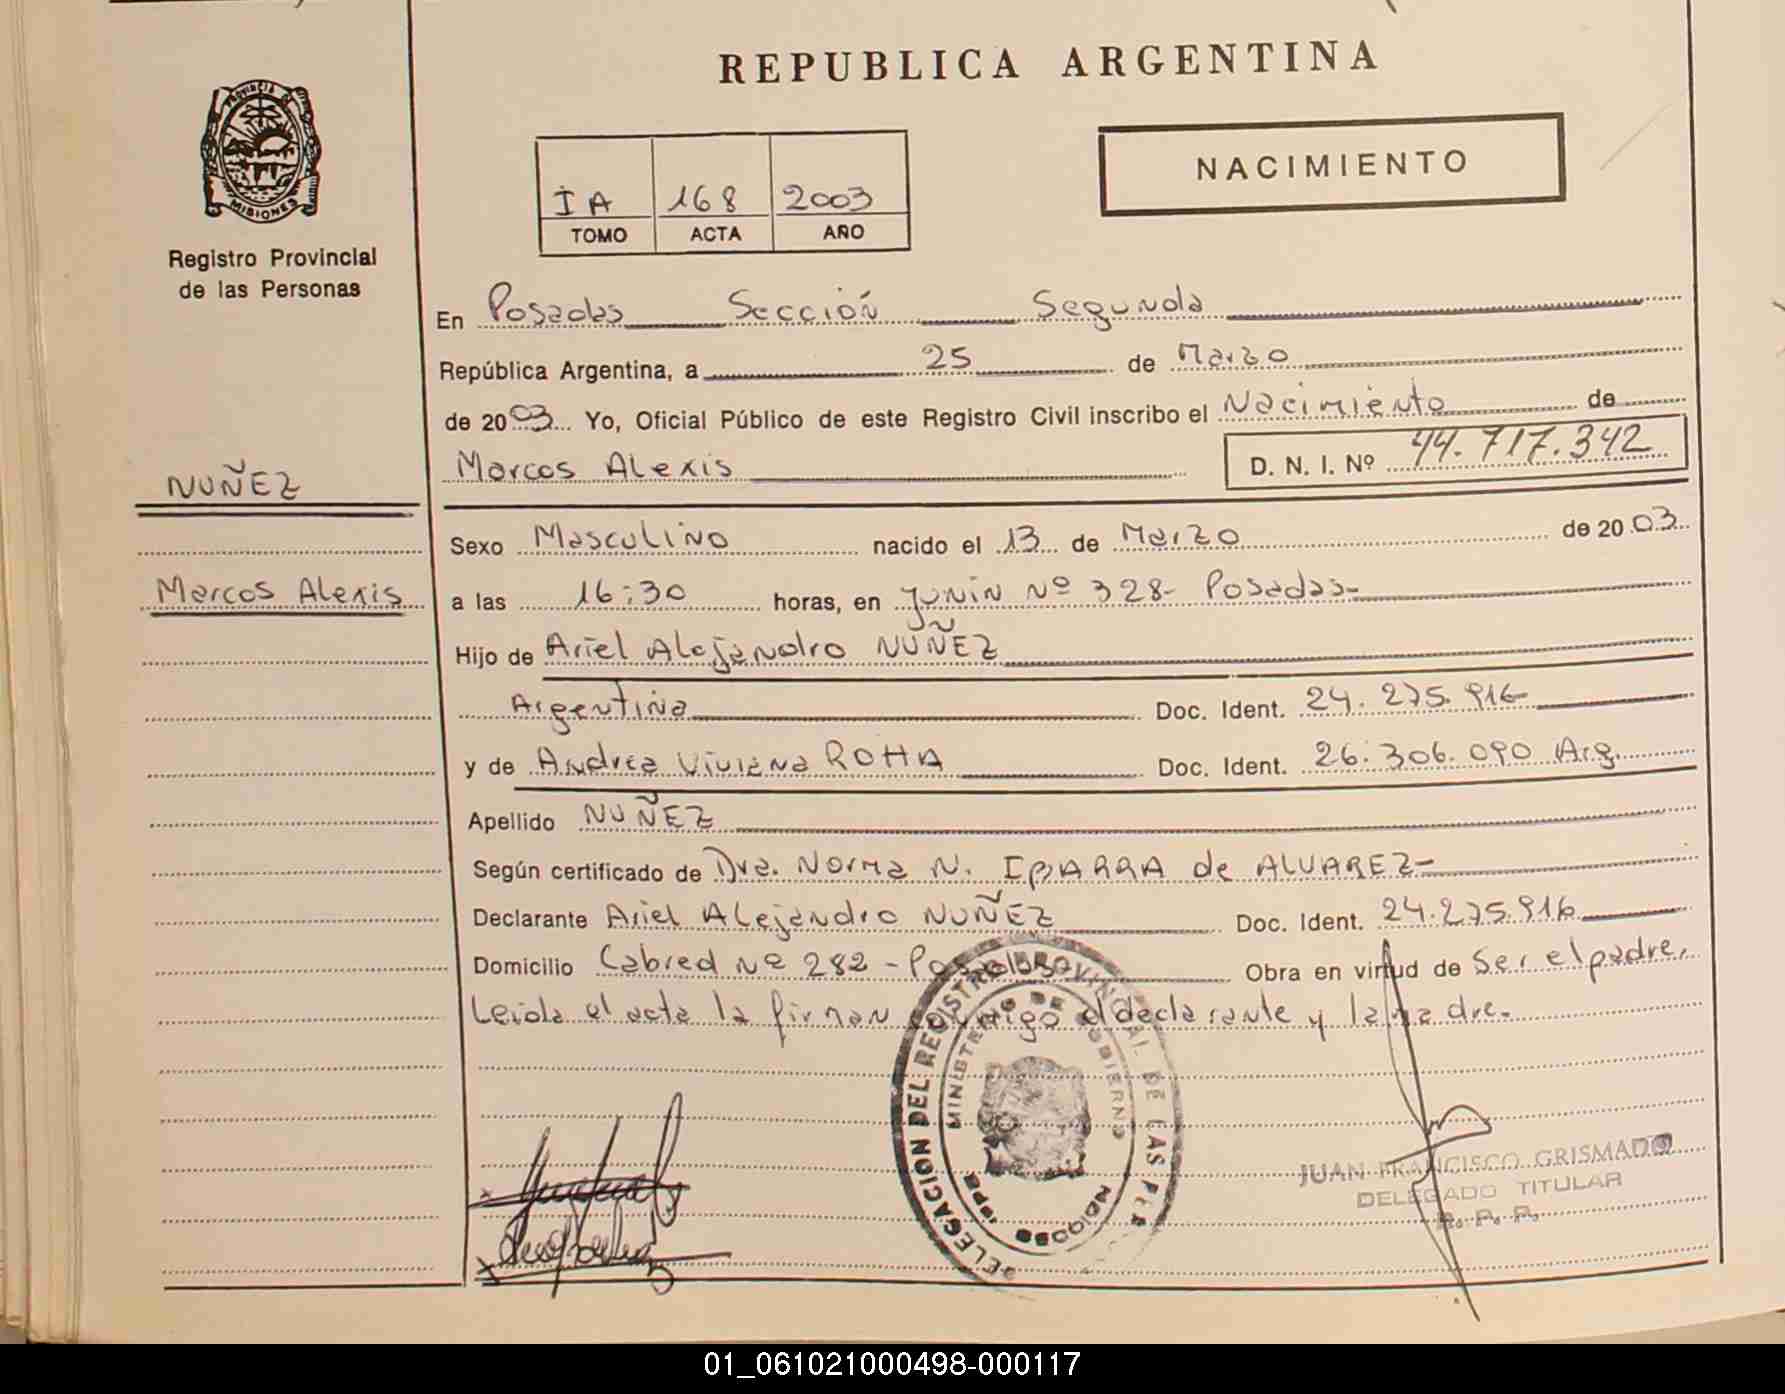 REPUBLICA ARGENTINA
PROVINCIA DE
MISIONES
Registro Provincial
de las Personas
NACIMIENTO
IA 168 2003
TOMO ACTA AÑO
En Posadas Sección Segunda
República Argentina, a 25 de Marzo
de 2003 Yo, Oficial Público de este Registro Civil inscribo el Nacimiento de
Marcos Alexis D. N. I. Nº 44.717.342
NUÑEZ
Marcos Alexis
Sexo Masculino nacido el 13 de Marzo de 2003
a las 16:30 horas, en Junin Nº 328- Posadas-
Hijo de Ariel Alejandro NUÑEZ
Argentina Doc. Ident. 24.275.916
y de Andrea Viviana ROHA Doc. Ident. 26.306.090 Arg.
Apellido NUÑEZ
Según certificado de Dra. Norma N. IBARRA de ALVAREZ-
Declarante Ariel Alejandro NUÑEZ Doc. Ident. 24.275.916
Domicilio Cabred Nº 282 - Posadas Obra en virtud de Ser el padre.
Leida el acta la firman conmigo el declarante y la madre.
DELEGACION DEL REGISTRO PROVINCIAL DE LAS PER
MINISTERIO DE GOBIERNO
JUAN FRANCISCO GRISMADO
DELEGADO TITULAR
R. P. P.
01_061021000498-000117